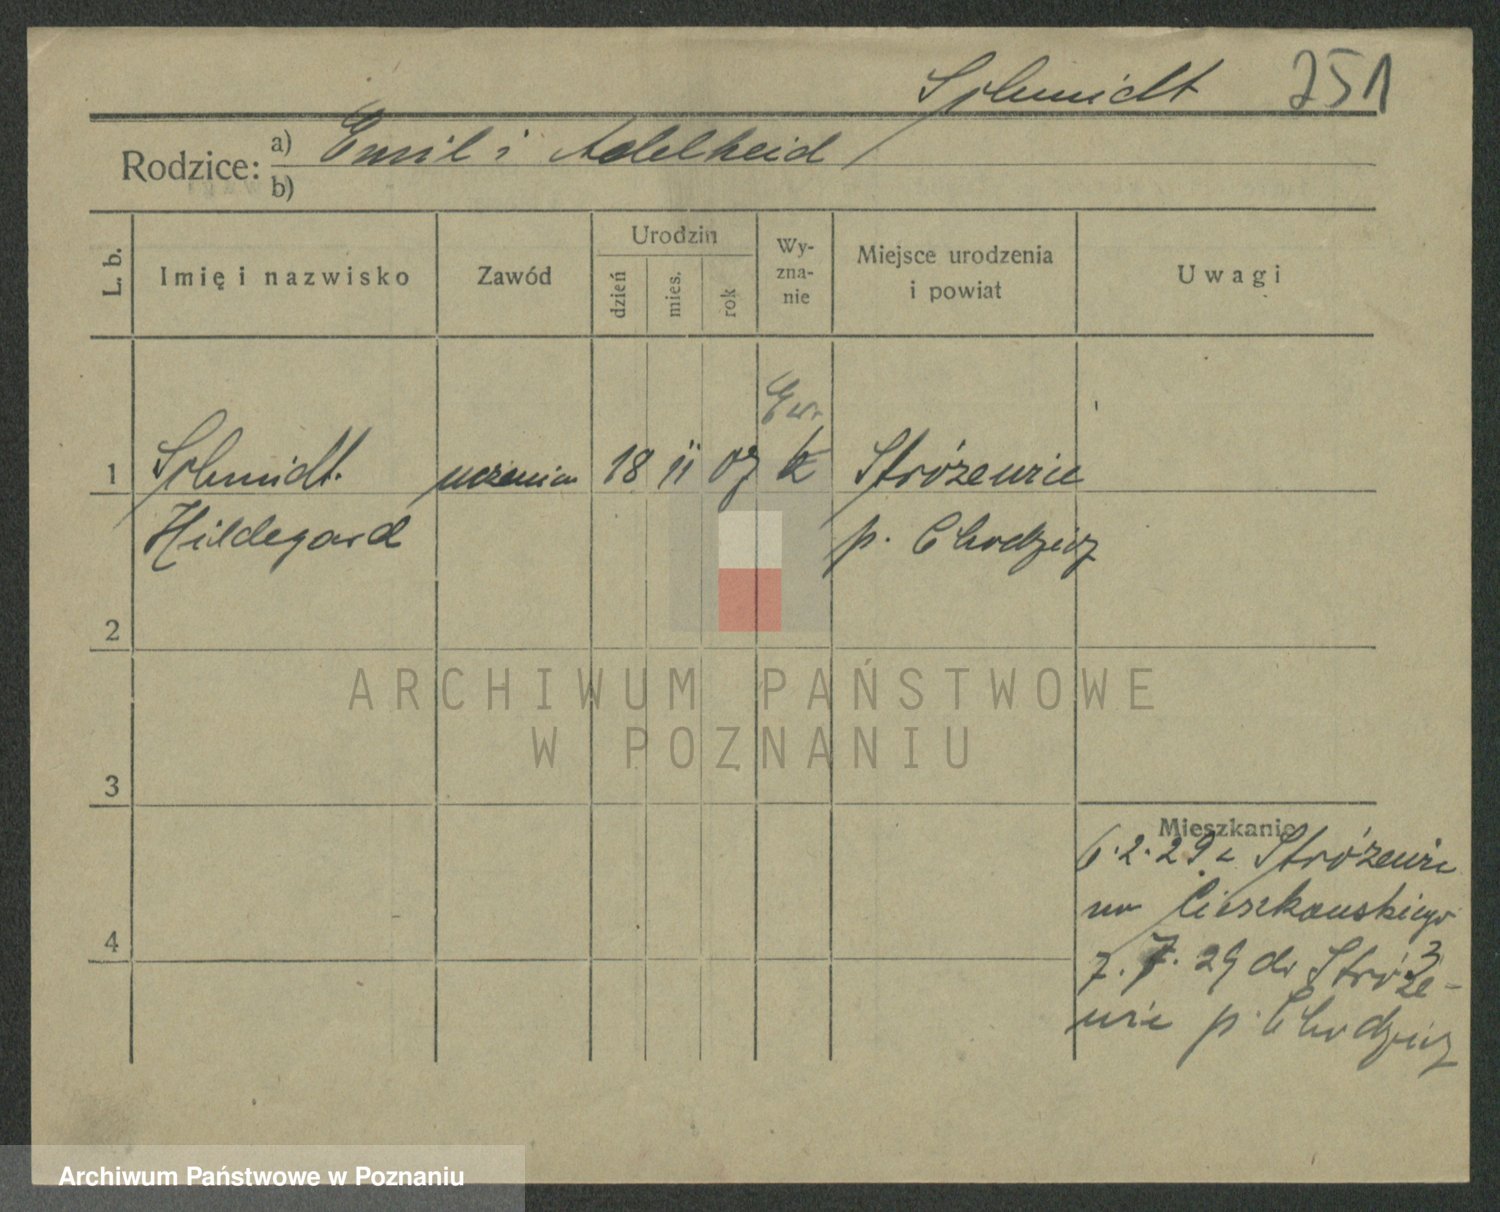 Schmidt 251
Rodzice: a) Emil i Adelheid
b)
L. b. Imię i nazwisko Zawód Urodzin dzień mies. rok Wy-zna-nie Miejsce urodzenia i powiat Uwagi
Ew.
1 Schmidt uczenica 18 ii 07 k Strózewie
Hildegard p. Chodzież
2
ARCHIWUM PAŃSTWOWE
W POZNANIU
3
Mieszkanie
6.2.29 z Strózewic
na Cieszkowskiego 3
7. 7. 29 do Stróże-
wic p. Chodzież
4
Archiwum Państwowe w Poznaniu